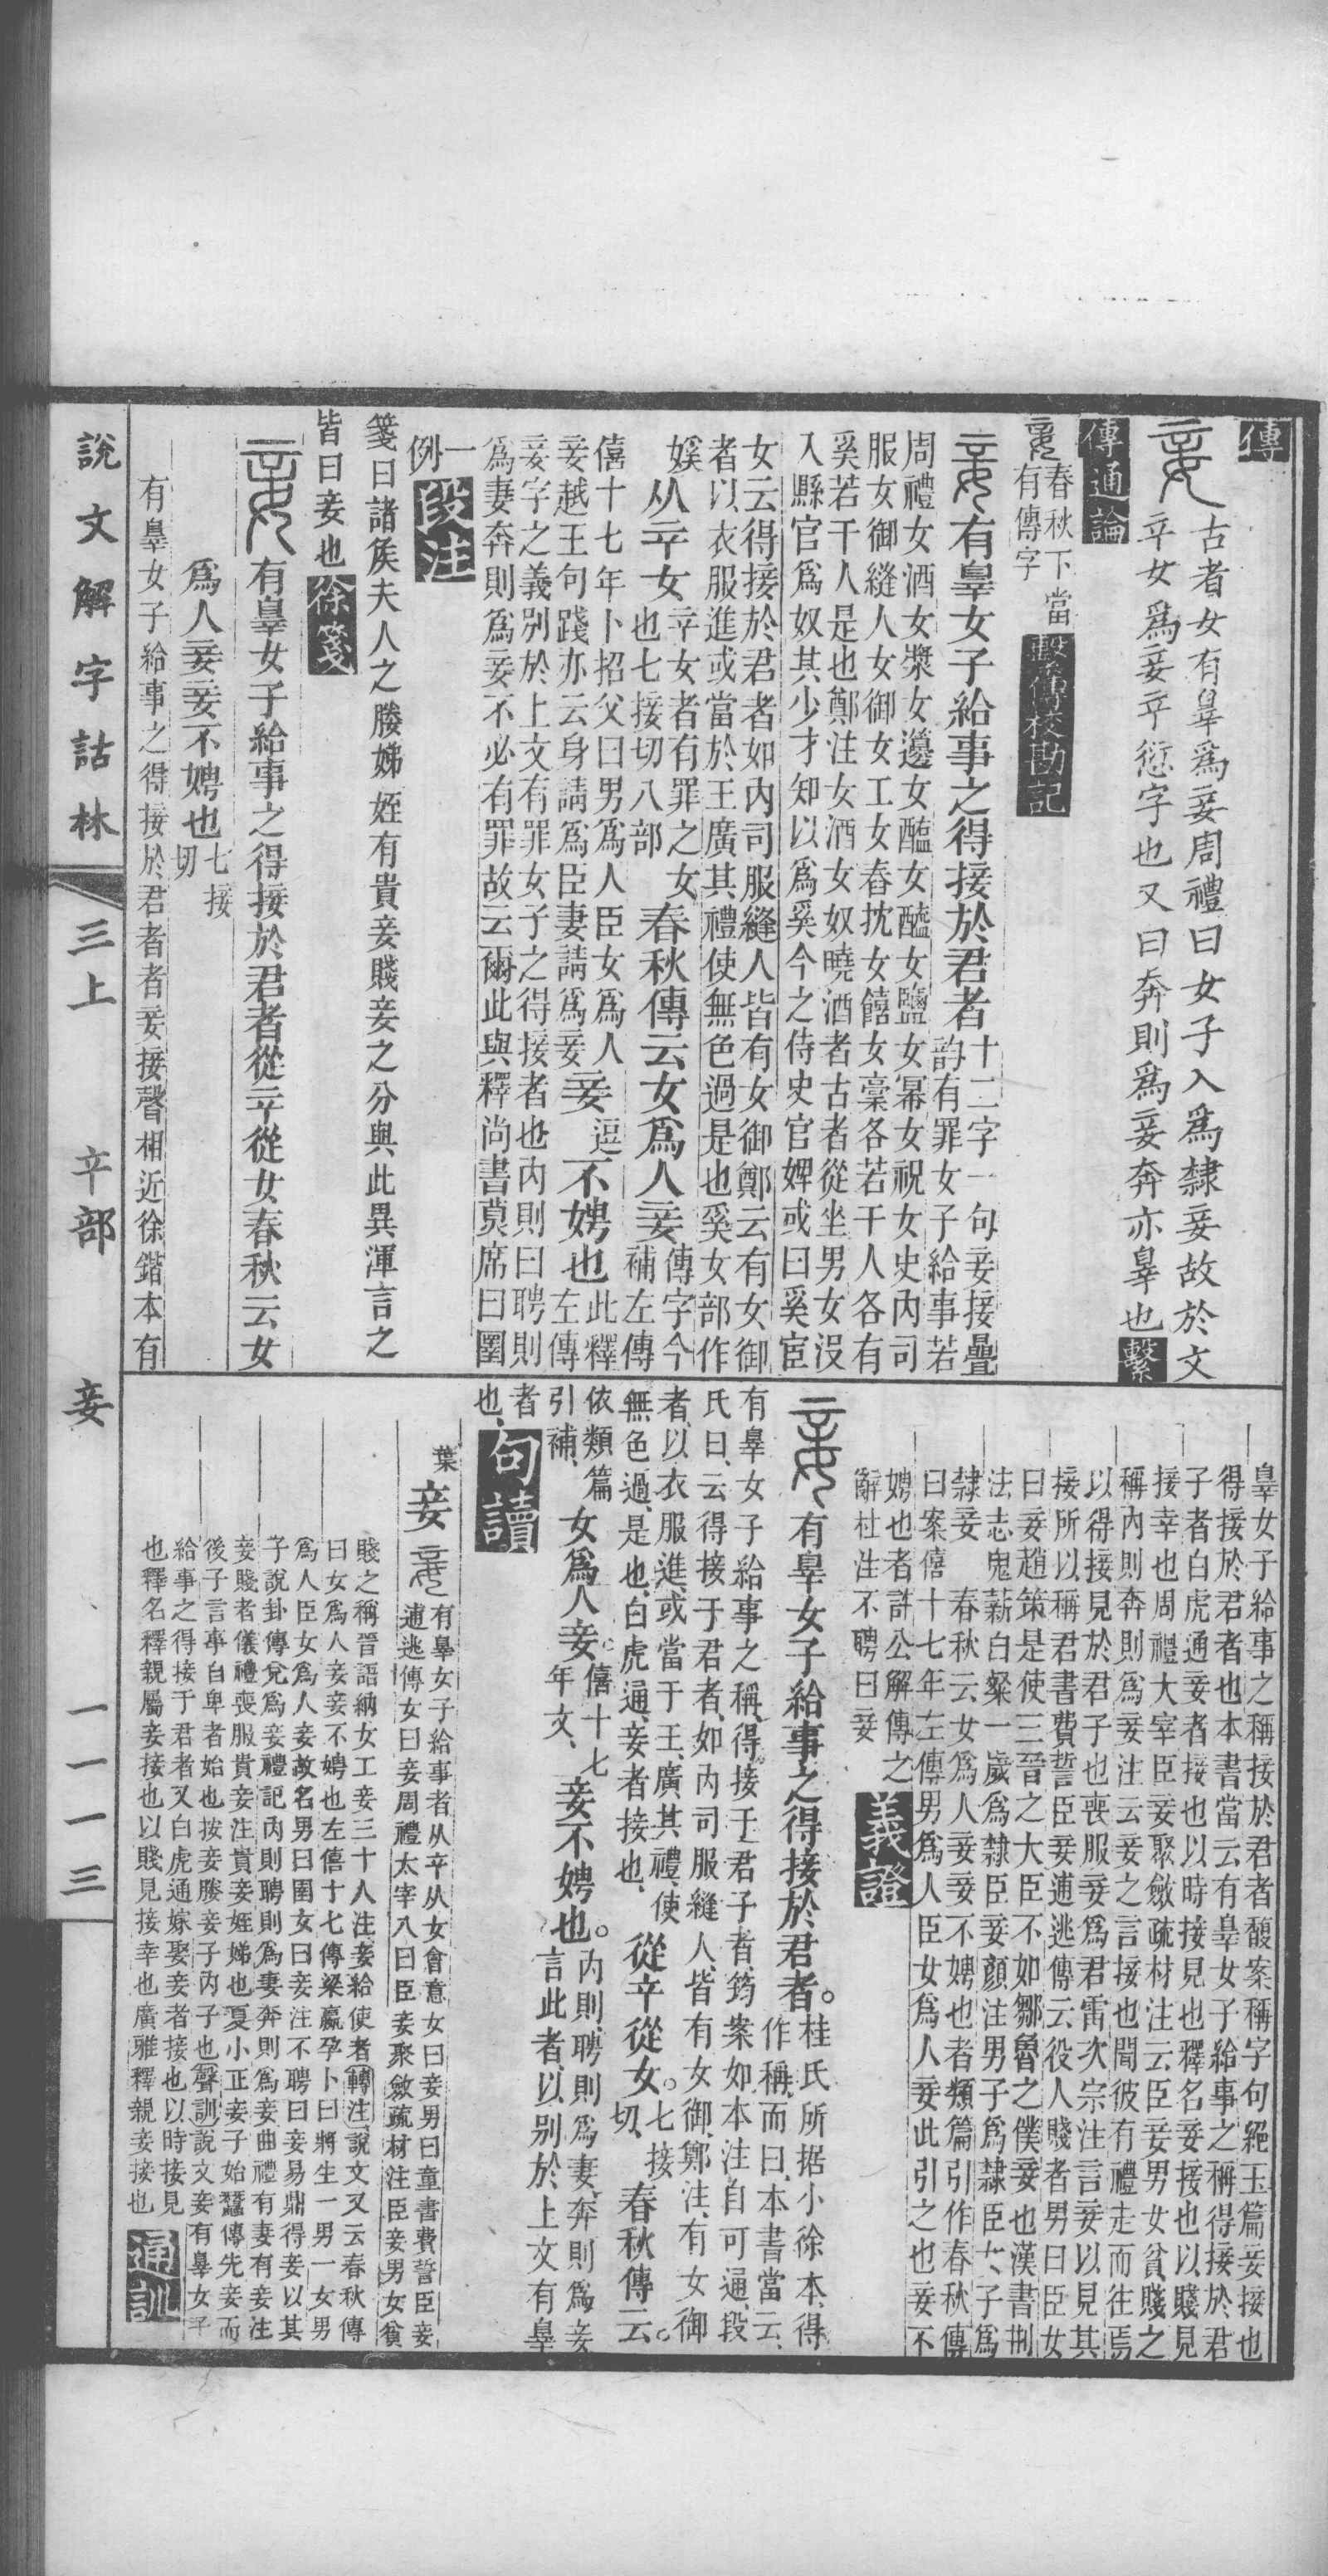 傳
古者女有辠爲妾周禮曰女子入爲隸妾故於文
䇂女爲妾䇂愆字也又曰奔則爲妾奔亦辠也繫
傳通論
春秋下當
有傳字
繫傳校勘記
有辠女子給事之得接於君者
十二字一句妾接疊
韵有罪女子給事若
周禮女酒女漿女籩女醢女醯女鹽女冪女祝女史內司
服女御縫人女御女工女舂抌女饎女槀各若干人各有
奚若干人是也鄭注女酒女奴曉酒者古者從坐男女沒
入縣官爲奴其少才知以爲奚今之侍史官婢或曰奚宦
女云得接於君者如內司服縫人皆有女御鄭云有女御
者以衣服進或當於王廣其禮使無色過是也奚女部作
㜎
从䇂女
䇂女者有罪之女
也七接切八部
春秋傳云女爲人妾
傳字今
補左傳
僖十七年卜招父曰男爲人臣女爲人
妾越王句踐亦云身請爲臣妻請爲妾
妾
逗
不娉也
此釋
左傳
妾字之義別於上文有罪女子之得接者也內則曰聘則
爲妻奔則爲妾不必有罪故云爾此與釋尚書䔳席曰圛
一
例
段注
箋曰諸矦夫人之媵娣姪有貴妾賤妾之分與此異渾言之
皆曰妾也徐箋
有辠女子給事之得接於君者從䇂從女春秋云女
爲人妾妾不娉也
七接
切
有辠女子給事之得接於君者者妾接聲相近徐鍇本有
辠女子給事之稱接於君者馥案稱字句絕玉篇妾接也
得接於君者也本書當云有辠女子給事之稱得接於君
子者白虎通妾者接也以時接見也釋名妾接也以賤見
接幸也周禮大宰臣妾聚斂疏材注云臣妾男女貧賤之
稱內則奔則爲妾注云妾之言接也聞彼有禮走而往焉
以得接見於君子也喪服妾爲君雷次宗注言妾以見其
接所以稱君書費誓臣妾逋逃傳云役人賤者男曰臣女
曰妾趙策是使三晉之大臣不如鄒魯之僕妾也漢書刑
法志鬼薪白粲一歲爲隸臣妾顏注男子爲隸臣女子爲
隸妾　春秋云女爲人妾妾不娉也者類篇引作春秋傳
曰案僖十七年左傳男爲人臣女爲人妾此引之也妾不
娉也者許公解傳之
辭杜注不聘曰妾
義證
有辠女子給事之得接於君者。
桂氏所据小徐本、得
作稱、而曰、本書當云、
有辠女子給事之稱、得接于君子者、筠案如本注自可通、段
氏曰、云得接于君者、如內司服縫人、皆有女御、鄭注、有女御
者、以衣服進、或當于王、廣其禮、使
無色過、是也、白虎通、妾者接也、
從䇂從女。
七接
切、
春秋傳云。
依類篇
引補、
女爲人妾。
僖十七
年文、
妾不娉也。
內則、聘則爲妻、奔則爲妾
言此者、以別於上文有辠
者
也、
句讀
葉
妾
有辠女子給事者从䇂从女會意女曰妾男曰童書費誓臣妾
逋逃傳女曰妾周禮太宰八曰臣妾聚斂疏材注臣妾男女貧
賤之稱晉語納女工妾三十人注妾給使者轉注說文又云春秋傳
曰女爲人妾妾不娉也左僖十七傳梁嬴孕卜曰將生一男一女男
爲人臣女爲人妾故名男曰圉女曰妾注不聘曰妾易鼎得妾以其
子說卦傳兌爲妾禮記內則聘則爲妻奔則爲妾曲禮有妻有妾注
妾賤者儀禮喪服貴妾注貴妾姪娣也夏小正妾子始蠶傳先妾而
後子言事自卑者始也按妾媵妾子內子也聲訓說文妾有辠女子
給事之得接于君者又白虎通嫁娶妾者接也以時接見
也釋名釋親屬妾接也以賤見接幸也廣雅釋親妾接也
通訓
說文解字詁林　三上　䇂部　妾　一一一三